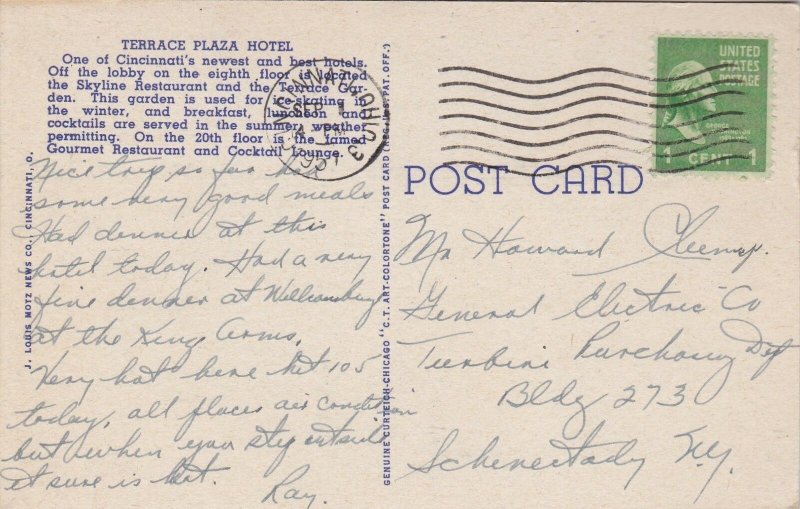 TERRACE PLAZA HOTEL
One of Cincinnati's newest and best hotels.
Off the lobby on the eighth floor is located
the Skyline Restaurant and the Terrace Gar-
den. This garden is used for ice-skating in
the winter, and breakfast, luncheon and
cocktails are served in the summer, weather
permitting. On the 20th floor is the famed
Gourmet Restaurant and Cocktail Lounge.
Nice trip so far had
some very good meals
Had denner at this
hotel today. Had a very
fine denner at Williamsburg
at the King Arms.
Very hot here hit 105
today, all places air condition
but when you step outside
it sure is hot.
Ray.
J. LOUIS MOTZ NEWS CO., CINCINNATI, O.
GENUINE CURTEICH-CHICAGO "C.T. ART-COLORTONE" POST CARD (REG. U.S. PAT. OFF.)
CINCINNATI, OHIO
SEP 1
PM
UNITED
STATES
POSTAGE
GEORGE
WASHINGTON
1 CENT 1
POST CARD
Mr Howard
General Electric Co
Turbini Purchasing Dept
Bldg 273
Schenectady N.Y.